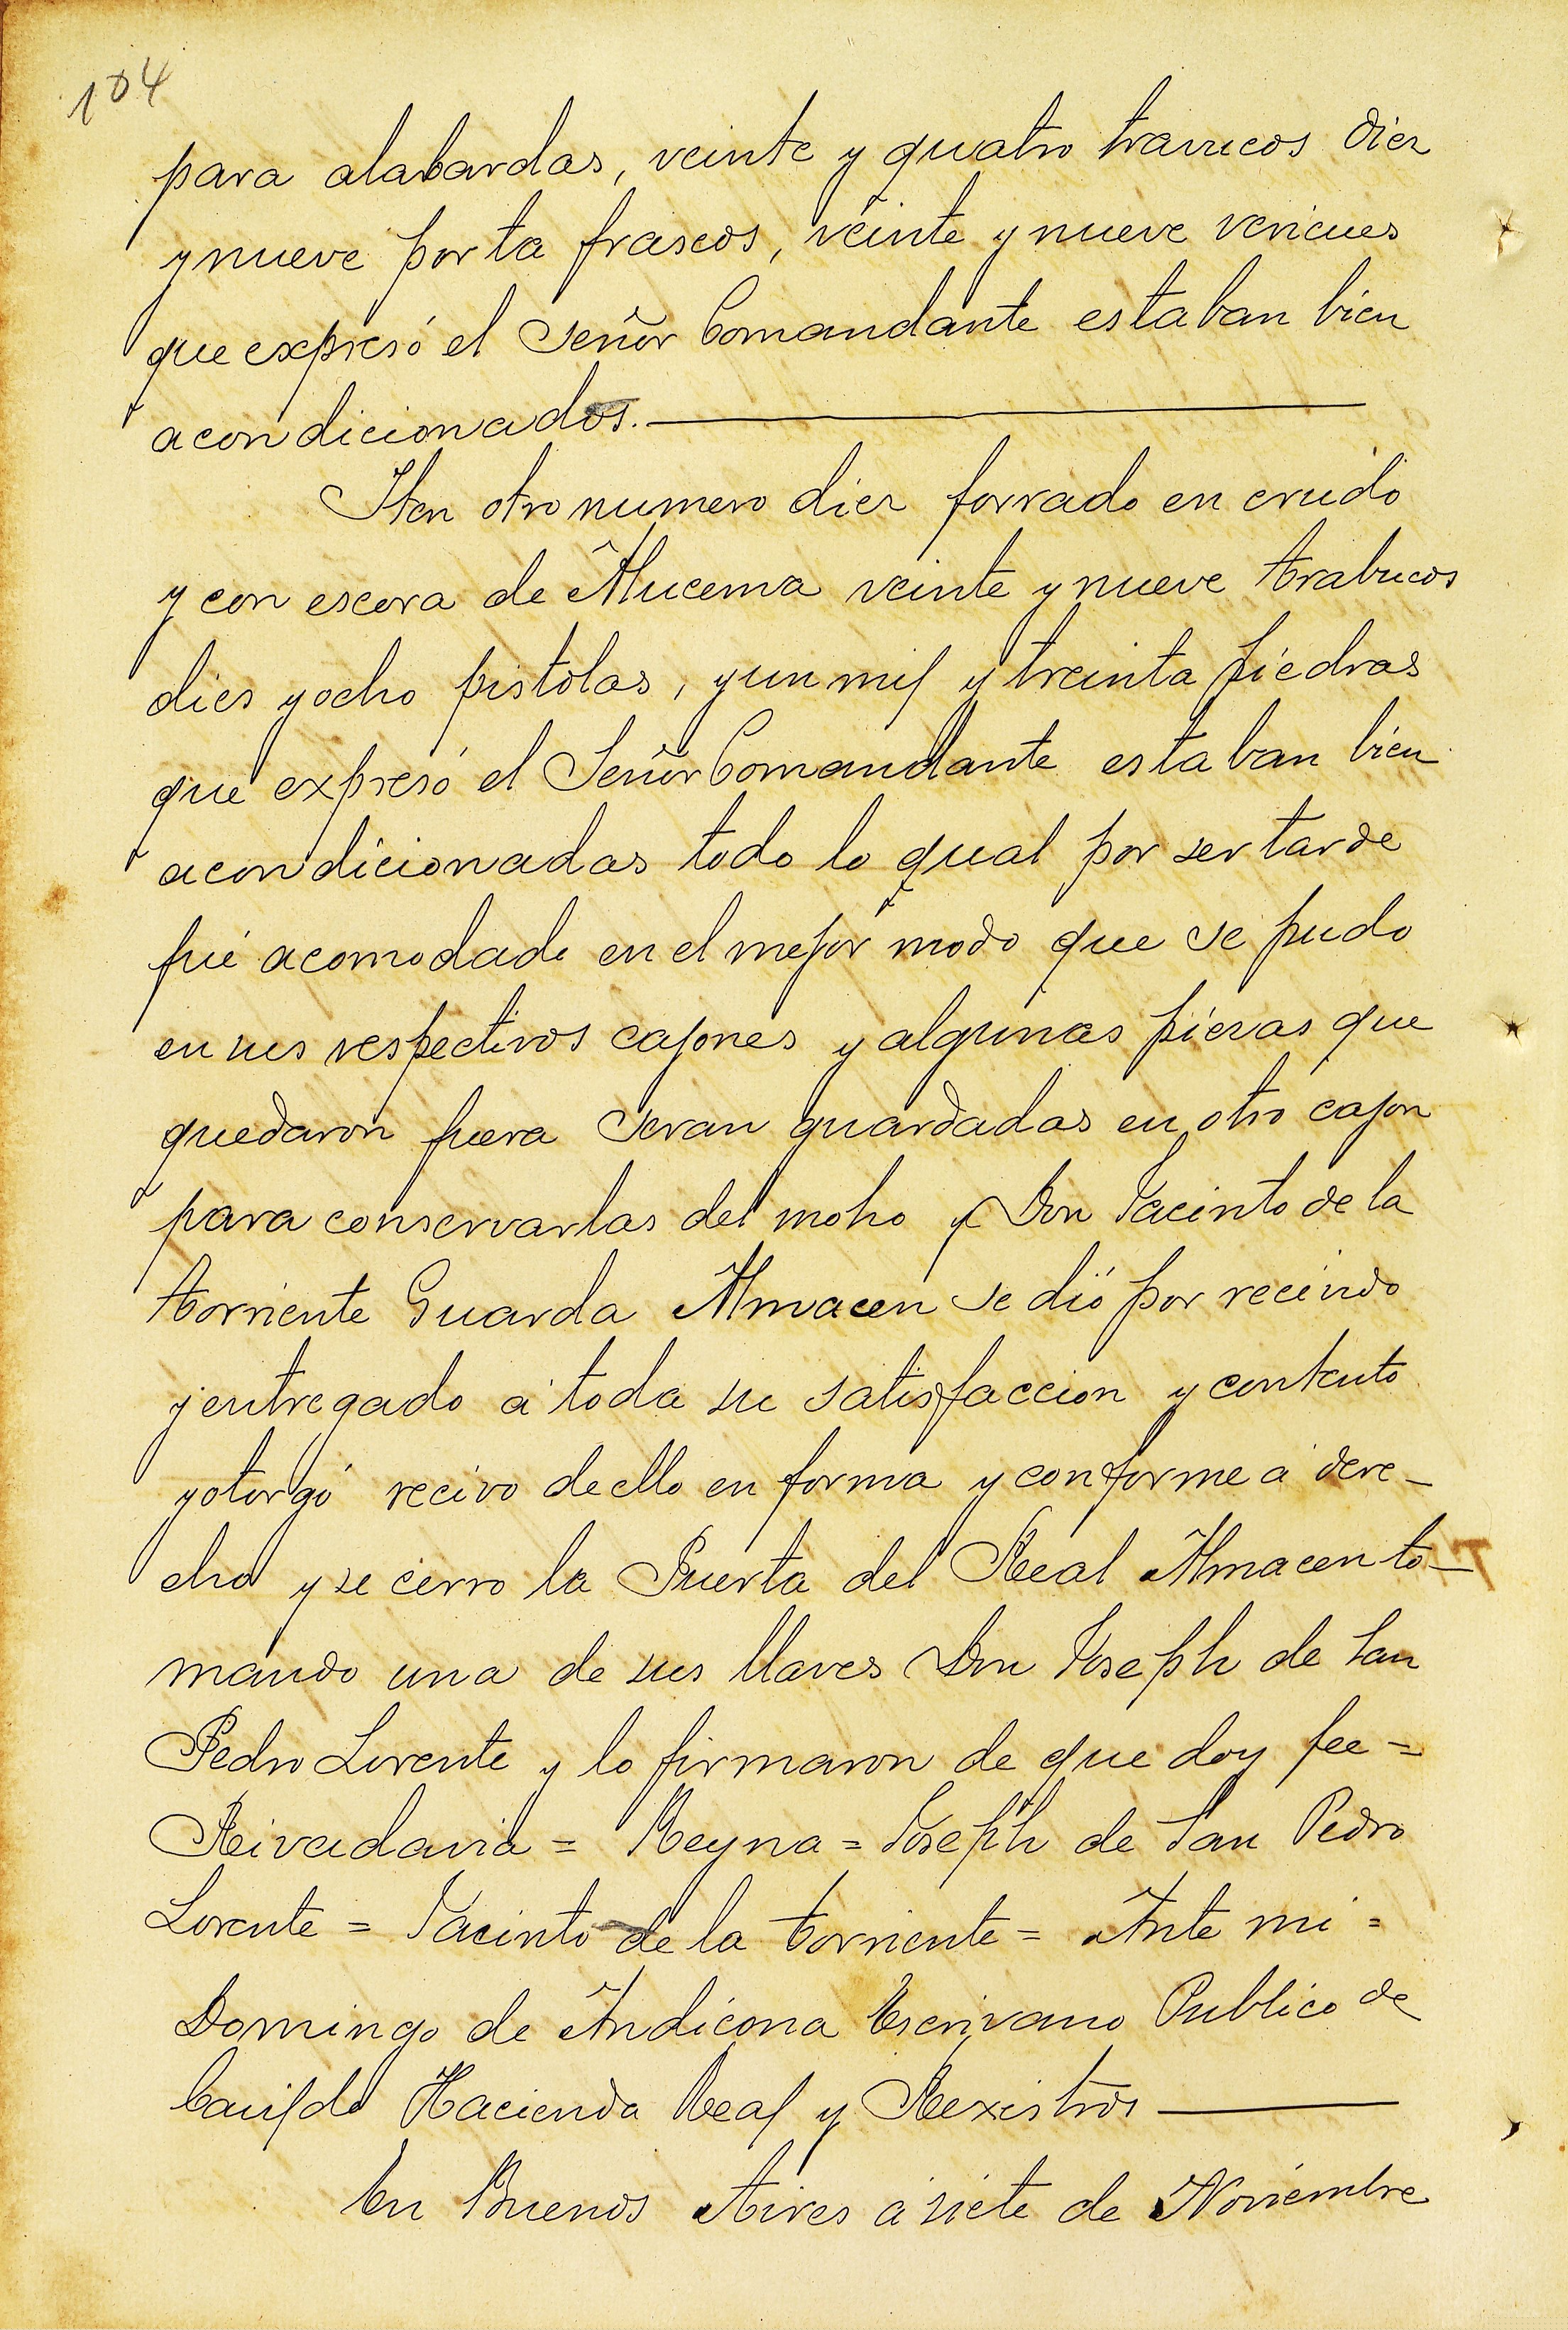 104
para alabardas, veinte y quatro travucos diez
y nueve porta frascos, veinte y nueve vericues
que expresó el Señor Comandante estaban bien
acondicionados.
Iten otro numero diez forrado en crudo
y con escora de Alucema veinte y nueve trabucos
dies y ocho pistolas, y un mil y treinta piedras
que expresó el Señor Comandante estaban bien
acondicionadas todo lo qual por ser tarde
fué acomodado en el mejor modo que se pudo
en sus respectivos cajones y algunas piezas que
quedaron fuera seran guardadas en otro cajon
para conservarlas del moho y Don Jacinto de la
torriente Guarda Almacen se dió por recivido
y entregado á toda su satisfaccion y contento
y otorgó recivo de ello en forma y conforme á dere-
cho y se cerro la Puerta del Real Almacen to-
mando una de sus llaves Don Joseph de San
Pedro Lorente y lo firmaron de que doy fee =
Reivadavia = Reyna = Joseph de San Pedro
Lorente = Jacinto de la torriente = Ante mi =
Domingo de Andicona Escrivano Publico de
Cavildo Hacienda Real y Rexistros
En Buenos Aires á siete de Noviembre